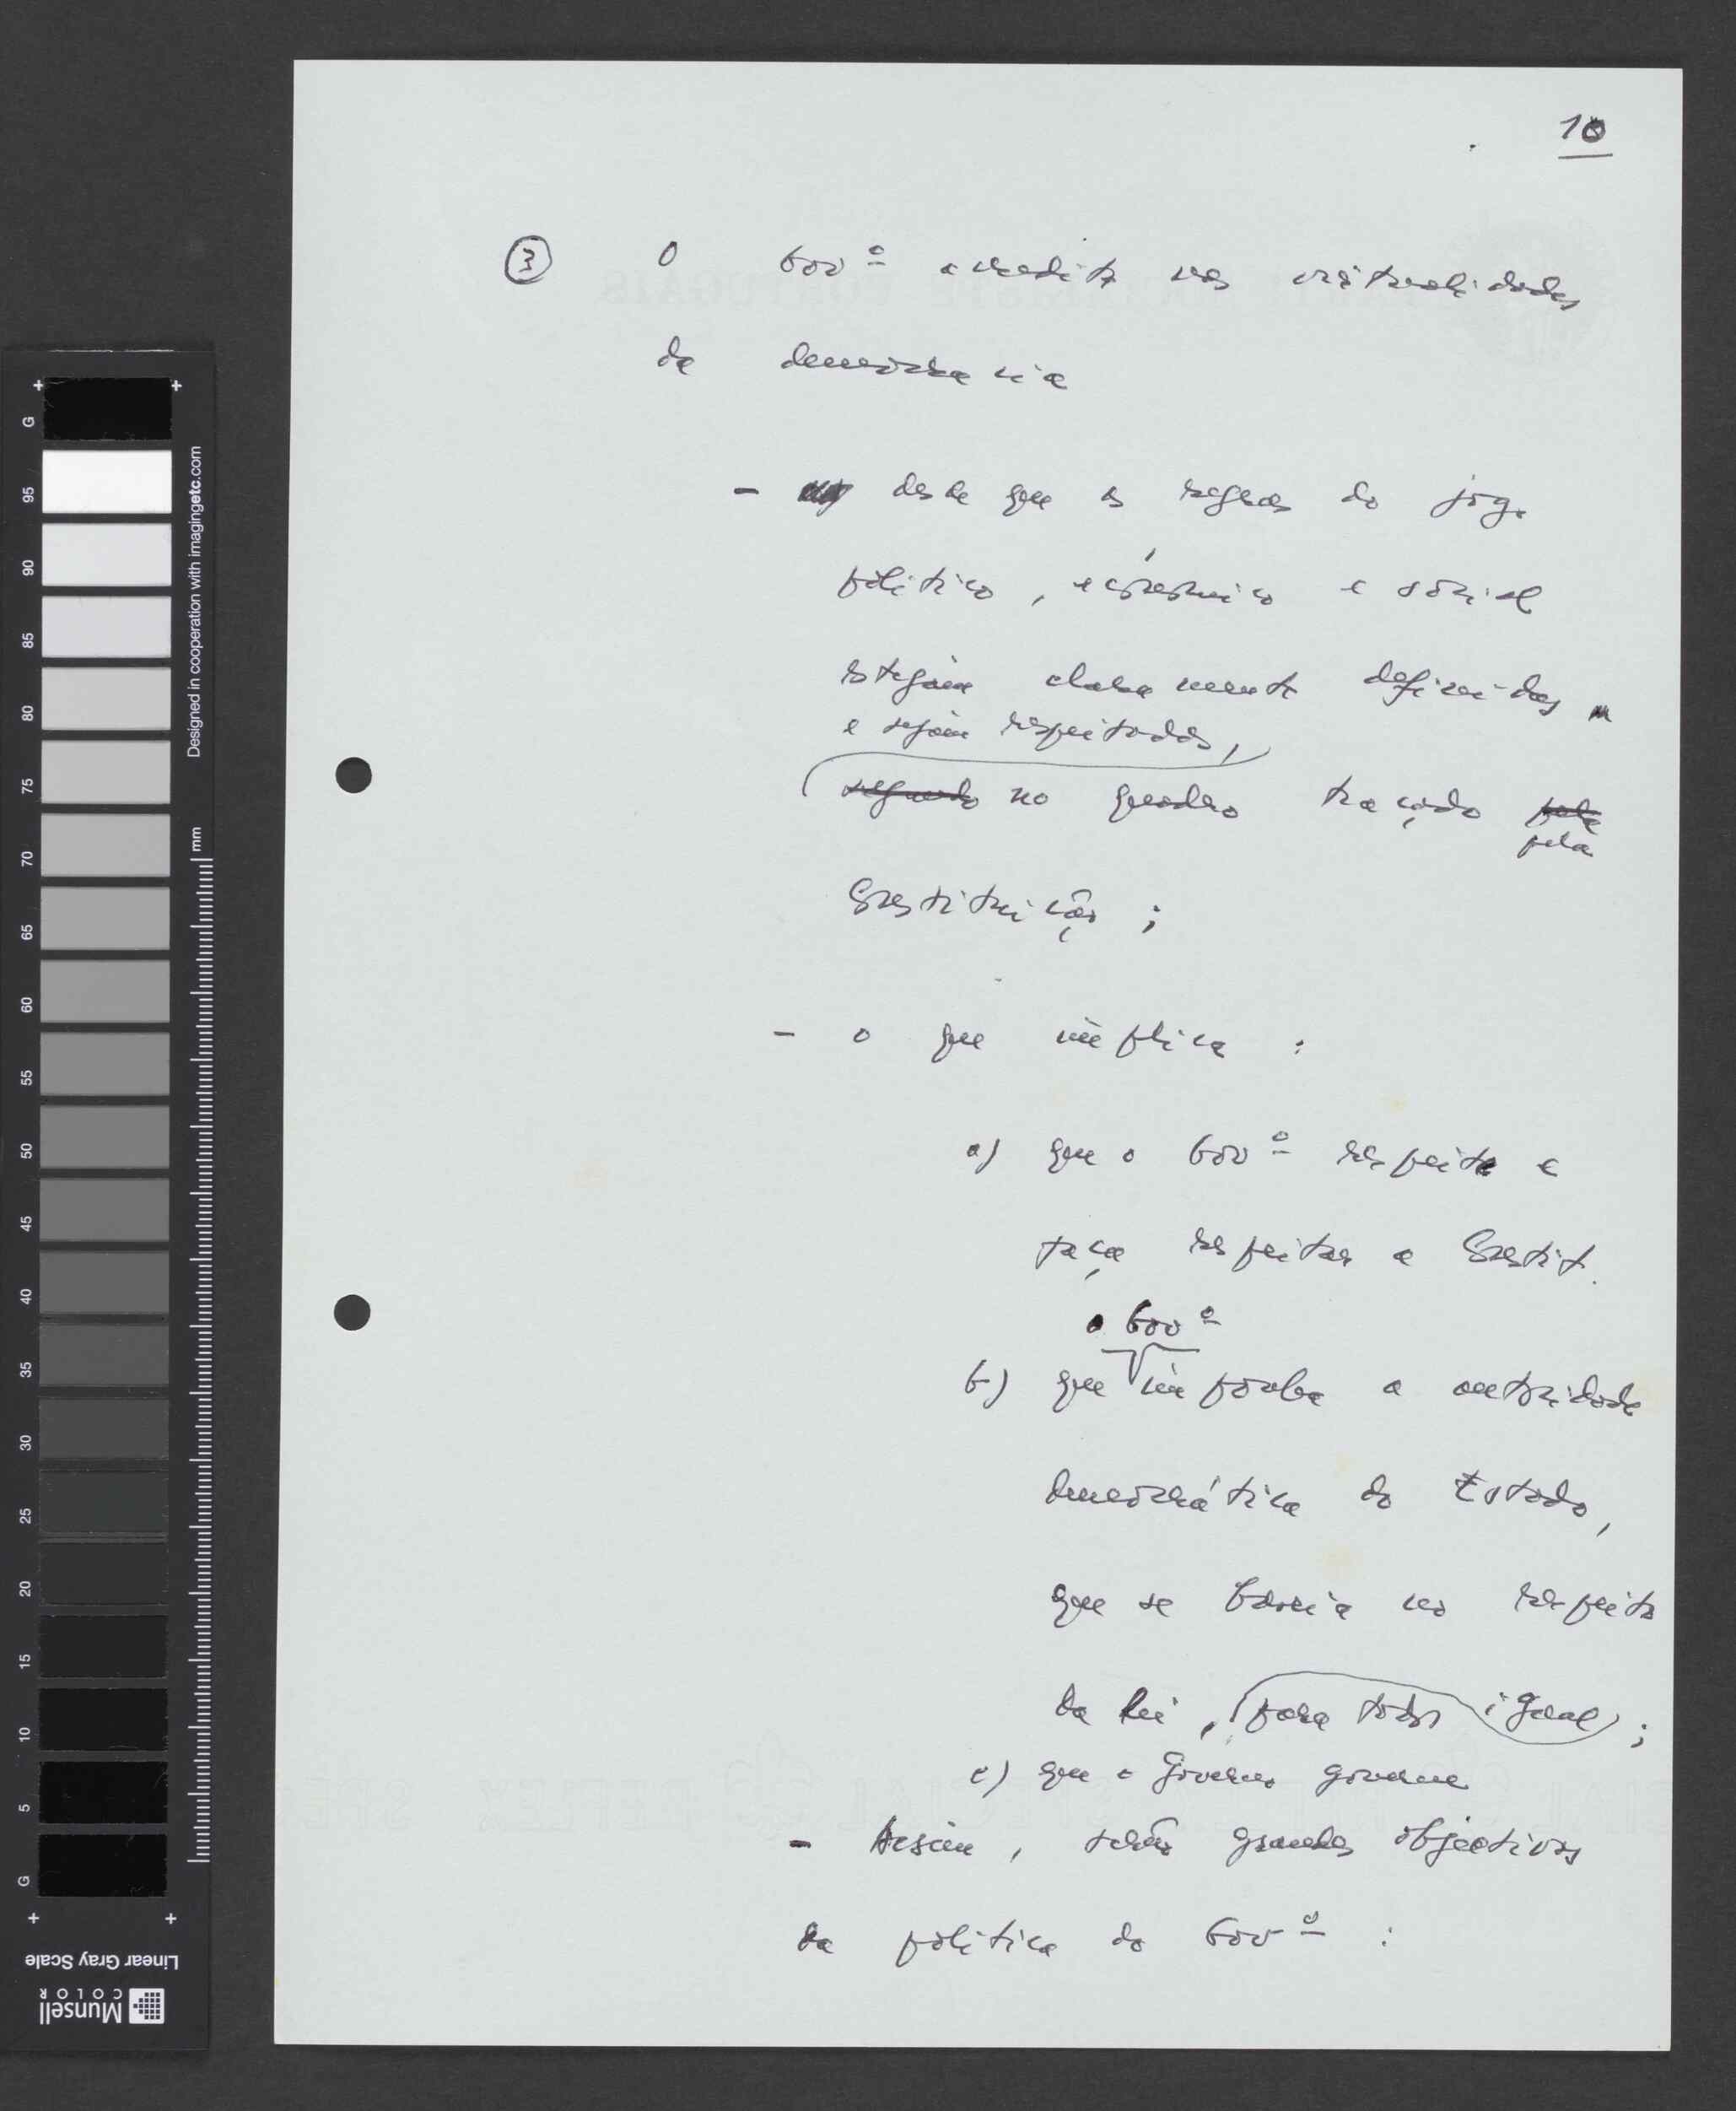 10
③ O Govº acredita nas virtualidades
da democracia
- desde que as regras do jogo
político, económico e social
estejam claramente definidas
e sejam respeitadas,
segundo no quadro traçado pela
pela
Constituição ;
- o que implica :
a) que o Govº respeite e
faça respeitar a Constit.
o Govº
b) que imponha a autoridade
democrática do Estado,
que se baseia no respeito
da lei, para todos igual ;
c) que o Governo governe
- Assim, serão grandes objectivos
da política do Govº :
G
95
90
85
80
75
70
65
60
55
50
45
40
35
30
25
20
15
10
5
G
Designed in cooperation with imagingetc.com
mm
Linear Gray Scale
Munsell
COLOR